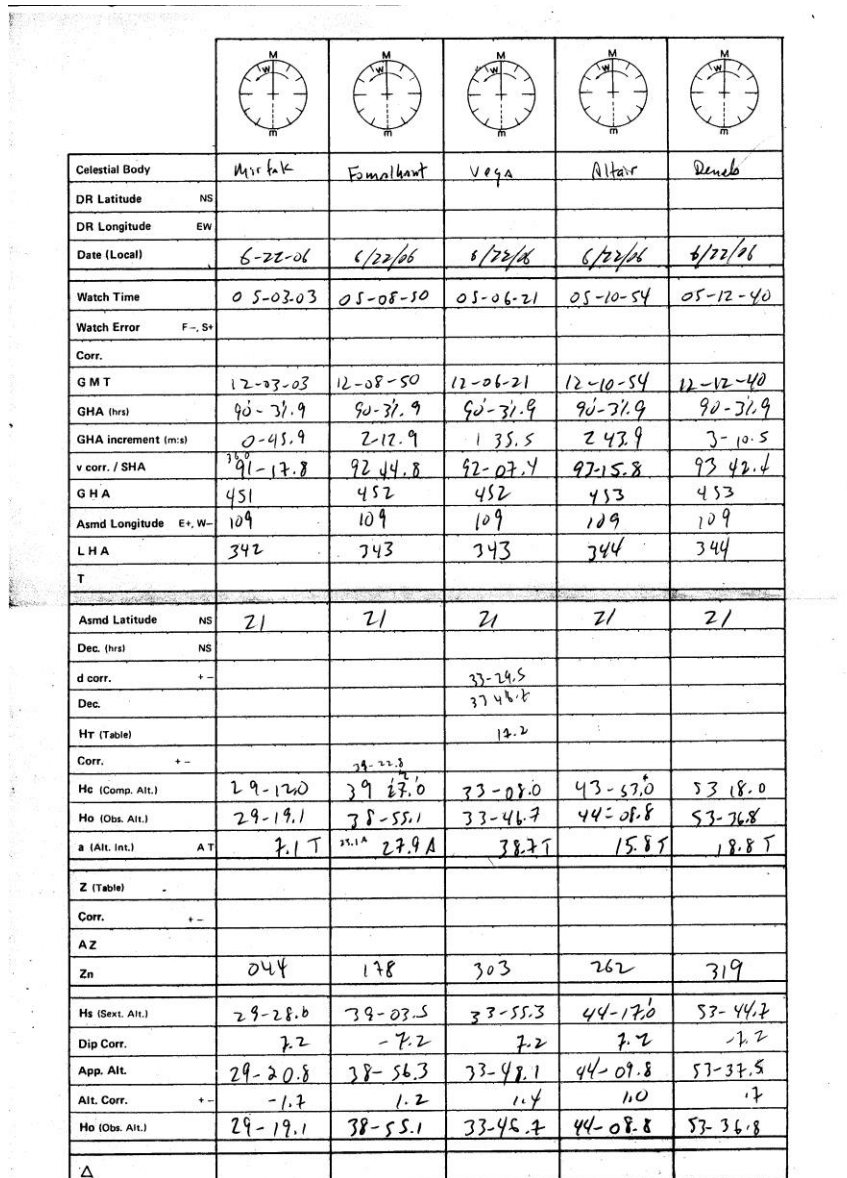 M M M M M
W W W W W
m m m m m
Celestial Body Mirfak Fomalhaut Vega Altair Deneb
DR Latitude NS
DR Longitude EW
Date (Local) 6-22-06 6/22/06 6/22/06 6/22/06 6/22/06
Watch Time 05-03-03 05-08-50 05-06-21 05-10-54 05-12-40
Watch Error F-, S+
Corr.
GMT 12-03-03 12-08-50 12-06-21 12-10-54 12-12-40
GHA (hrs) 90-31.9 90-31.9 90-31.9 90-31.9 90-31.9
GHA increment (m:s) 0-45.9 2-12.9 1 35.5 2 43.9 3-10.5
v corr. / SHA 360 91-17.8 92 44.8 92-07.4 93-15.8 93 42.4
GHA 451 452 452 453 453
Asmd Longitude E+, W- 109 109 109 109 109
LHA 342 343 343 344 344
T
Asmd Latitude NS 21 21 21 21 21
Dec. (hrs) NS
d corr. + - 33-29.5
Dec. 33 46.7
HT (Table) 17.2
Corr. + - 39-22.8
Hc (Comp. Alt.) 29-12.0 39 27.0 33-08.0 43-53.0 53 18.0
Ho (Obs. Alt.) 29-19.1 38-55.1 33-46.7 44-08.8 53-36.8
a (Alt. Int.) A T 7.1 T 27.9 A 38.7 T 15.8 T 18.8 T
Z (Table)
Corr. + -
AZ
Zn 044 178 303 262 319
Hs (Sext. Alt.) 29-28.6 39-03.5 33-55.3 44-17.0 53-44.7
Dip Corr. 7.2 -7.2 7.2 7.2 -7.2
App. Alt. 29-20.8 38-56.3 33-48.1 44-09.8 53-37.5
Alt. Corr. + - -1.7 1.2 1.4 1.0 .7
Ho (Obs. Alt.) 29-19.1 38-55.1 33-46.7 44-08.8 53-36.8
Δ